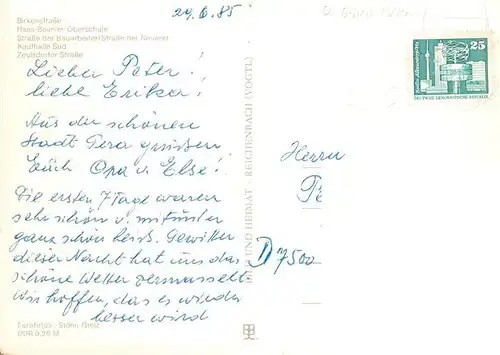 29.6.85
Birkenstraße
Hans-Beimler-Oberschule
Straße der Bauarbeiter/Straße der Neuerer
Kaufhalle Süd
Zeulsdorfer Straße
Lieber Peter!
liebe Erika!
Aus der schönen
Stadt Gera grüßen
Euch Opa u. Else!
Die ersten 7 Tage waren
sehr schön u. mitunter
ganz schön heiß. Gewitter
dieser Nacht hat uns das
schöne Wetter vermasselt
Wir hoffen, das es wieder
besser wird
Farbfotos: Stöhr, Greiz
DDR 0,20 M
BILD UND HEIMAT REICHENBACH (VOGTL)
25
DEUTSCHE DEMOKRATISCHE REPUBLIK
Herrn
Pe
D 7500